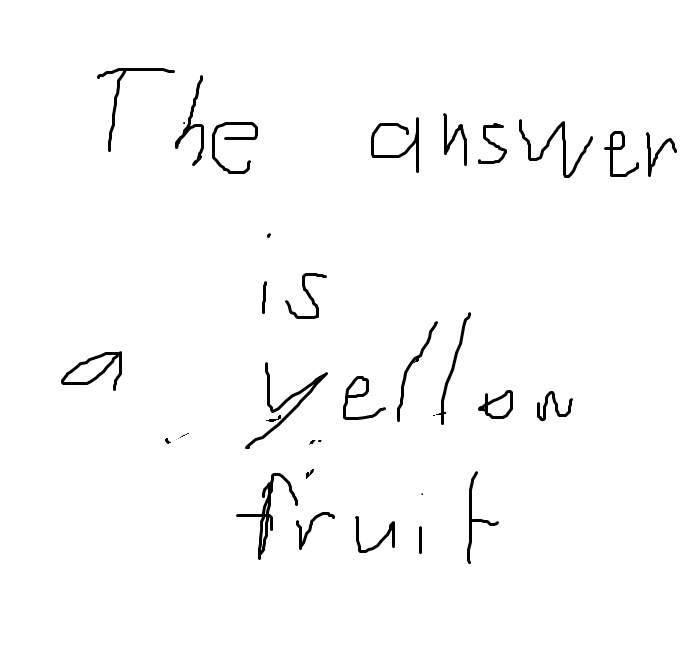 The answer
is
a yellow
fruit